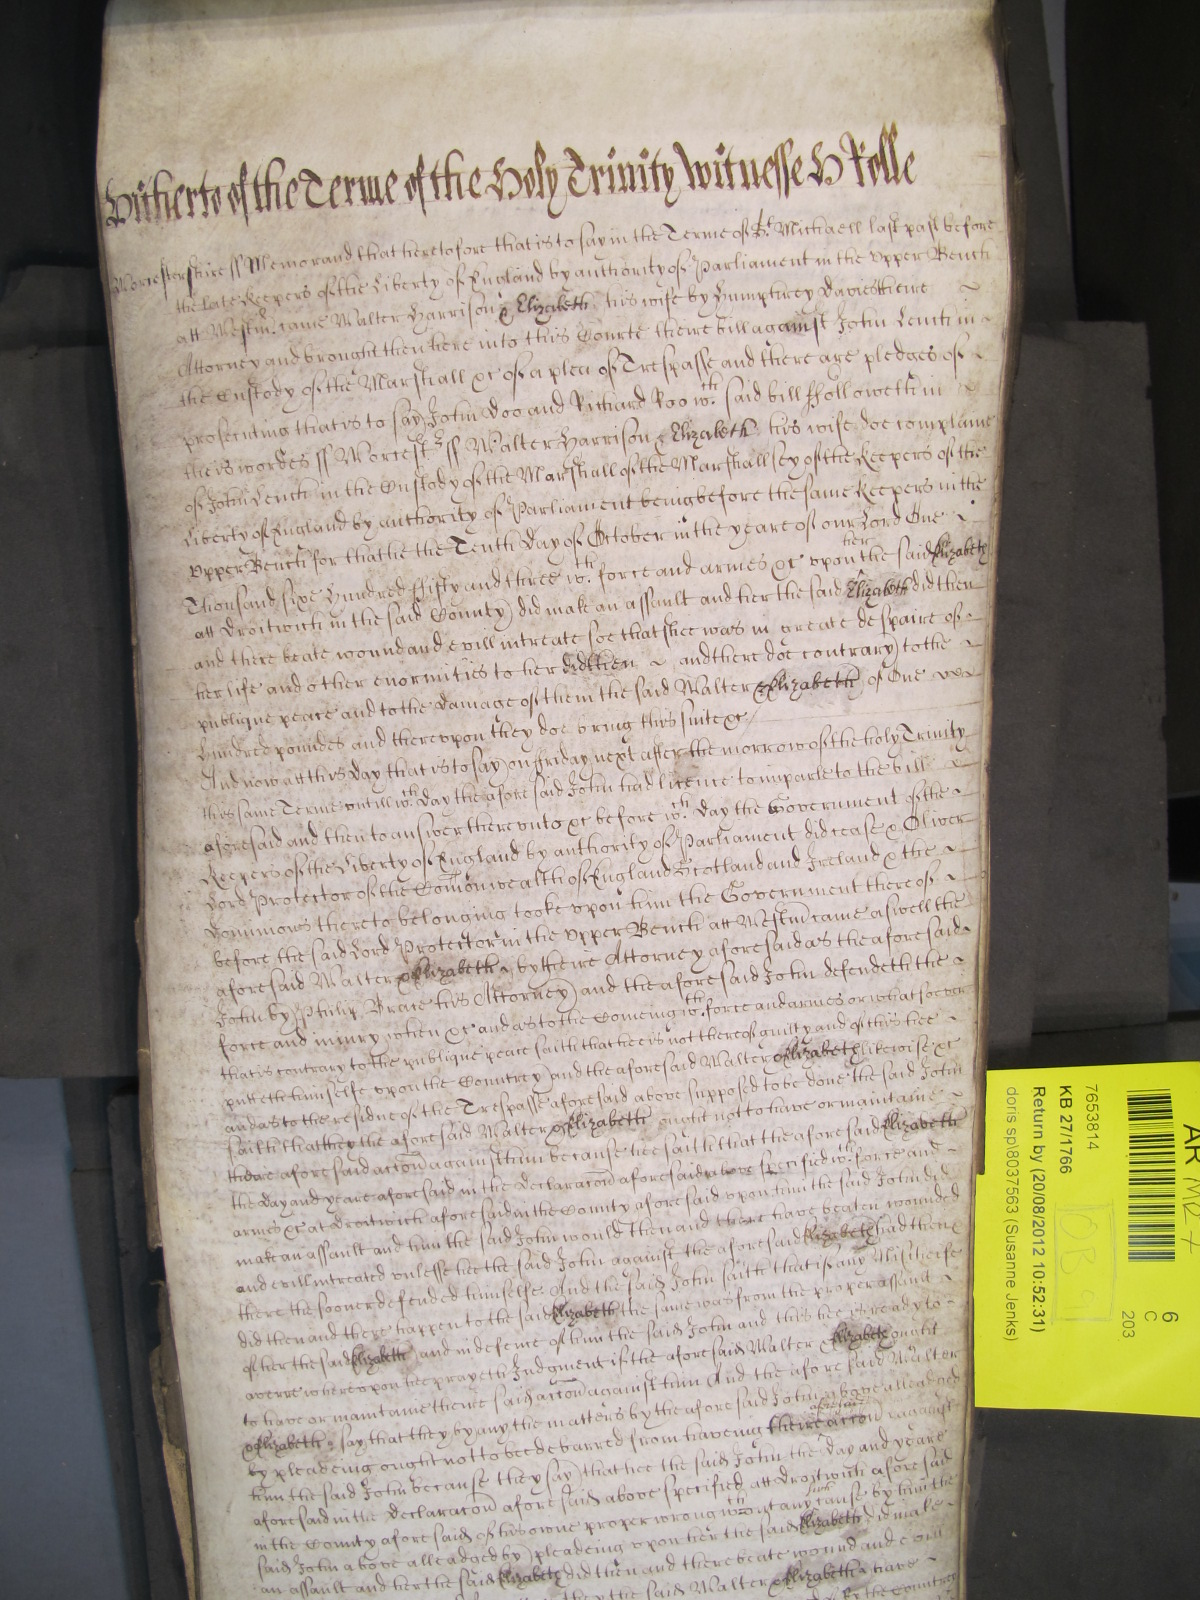 Hitherto of the Terme of the Holy Trinity Witnesse H Rolle
Worcestershire ss Memorand that heretofore that is to say in the Terme of St. Michaell last past before
the late Keepers of the Liberty of England by authority of Parliament in the Upper Bench
att Westm. came Walter Harrison & Elizabeth his wife by Humphrey Davies theire
Attorney and brought then here into this Courte theire bill against John Lench in
the Custody of the Marshall &c of a plea of Trespasse and there are pledges of
prosecuting that is to say John Doo and Richard Roo wch. said bill ffolloweth in
theis wordes ss Worcest ss Walter Harrison & Elizabeth his wife doe complaine
of John Lench in the Custody of the Marshall of the Marshallsey of the Keepers of the
Liberty of England by authority of Parliament being before the same Keepers in the
Upper Bench for that he the Tenth Day of October in the yeare of our Lord One
Thousand sixe Hundred ffifty and three wth. force and armes &c upon her the said Elizabeth
att Droitwich in the said County did make an assault and her the said Elizabeth did then
and there beate wound and evill intreate soe that shee was in greate despaire of
her life and other enormities to her did then and there doe contrary to the
publique peace and to the Damage of them the said Walter & Elizabeth of One
Hundred poundes and thereupon they doe bring this suite &c
And now att this Day that is to say on ffriday next after the morrow of the holy Trinity
this same Terme untill wch. Day the aforesaid John had licence to imparle to the bill
aforesaid and then to answer thereunto &c before wch. Day the Government of the
Keepers of the Liberty of England by authority of Parliament did cease & Oliver
Lord Protector of the Comonwealth of England Scotland and Ireland & the
Dominions thereto belonging tooke upon him the Government thereof
before the said Lord Protector in the Upper Bench att Westm came aswell the
aforesaid Walter & Elizabeth by theire Attorney aforesaid as the aforesaid
John by Philip Brace his Attorney and the aforesaid John defendeth the
force and iniury when &c and as to the Comeing wth. force and armes or whatsoever
that is contrary to the publique peace saith that hee is not thereof guilty and of this hee
putteth himselfe upon the Countrey and the aforesaid Walter & Elizabeth likewise &c
and as to the residue of the Trespasse aforesaid above supposed to be done the said John
saith that they the aforesaid Walter & Elizabeth ought not to have or maintaine
theire aforesaid accon against him because hee saith that the aforesaid Elizabeth
the Day and yeare aforesaid in the Declaracon aforesaid above specified wth. force and
armes &c at Droitwich aforesaid in the County aforesaid upon him the said John did
make an assault and him the said John would then and there have beaten wounded
and evill intreated unlesse hee the said John against the aforesaid Elizabeth had then
there the sooner defended himselfe. And the said John saith that if any Mischeife
did then and there happen to the said Elizabeth the same was from the proper assault
of her the said Elizabeth and in defence of him the said John and this hee is ready to
averre whereupon hee prayeth Judgment if the aforesaid Walter & Elizabeth ought
to have or maintaine theire said accon against him And the aforesaid Walter
& Elizabeth say that they by any the matters by the aforesaid John above alleadged
by pleadeing ought not to bee debarred from haveing theire accon aforesaid against
him the said John because they say that hee the said John the Day and yeare
aforesaid in the Declaracon aforesaid above specified att Droitwich aforesaid
in the County aforesaid of his owne proper wrong wthout any such cause by him the
said John above alleadged by pleadeing upon her the said Elizabeth did make
an assault and her the said Elizabeth did then and there beate wound and evill
the said Walter & Elizabeth have
by the Countrey
AR MR +
6
C
203
7653814
KB 27/1766
Return by (20/08/2012 10:52:31)
doris sp\8037563 (Susanne Jenks)